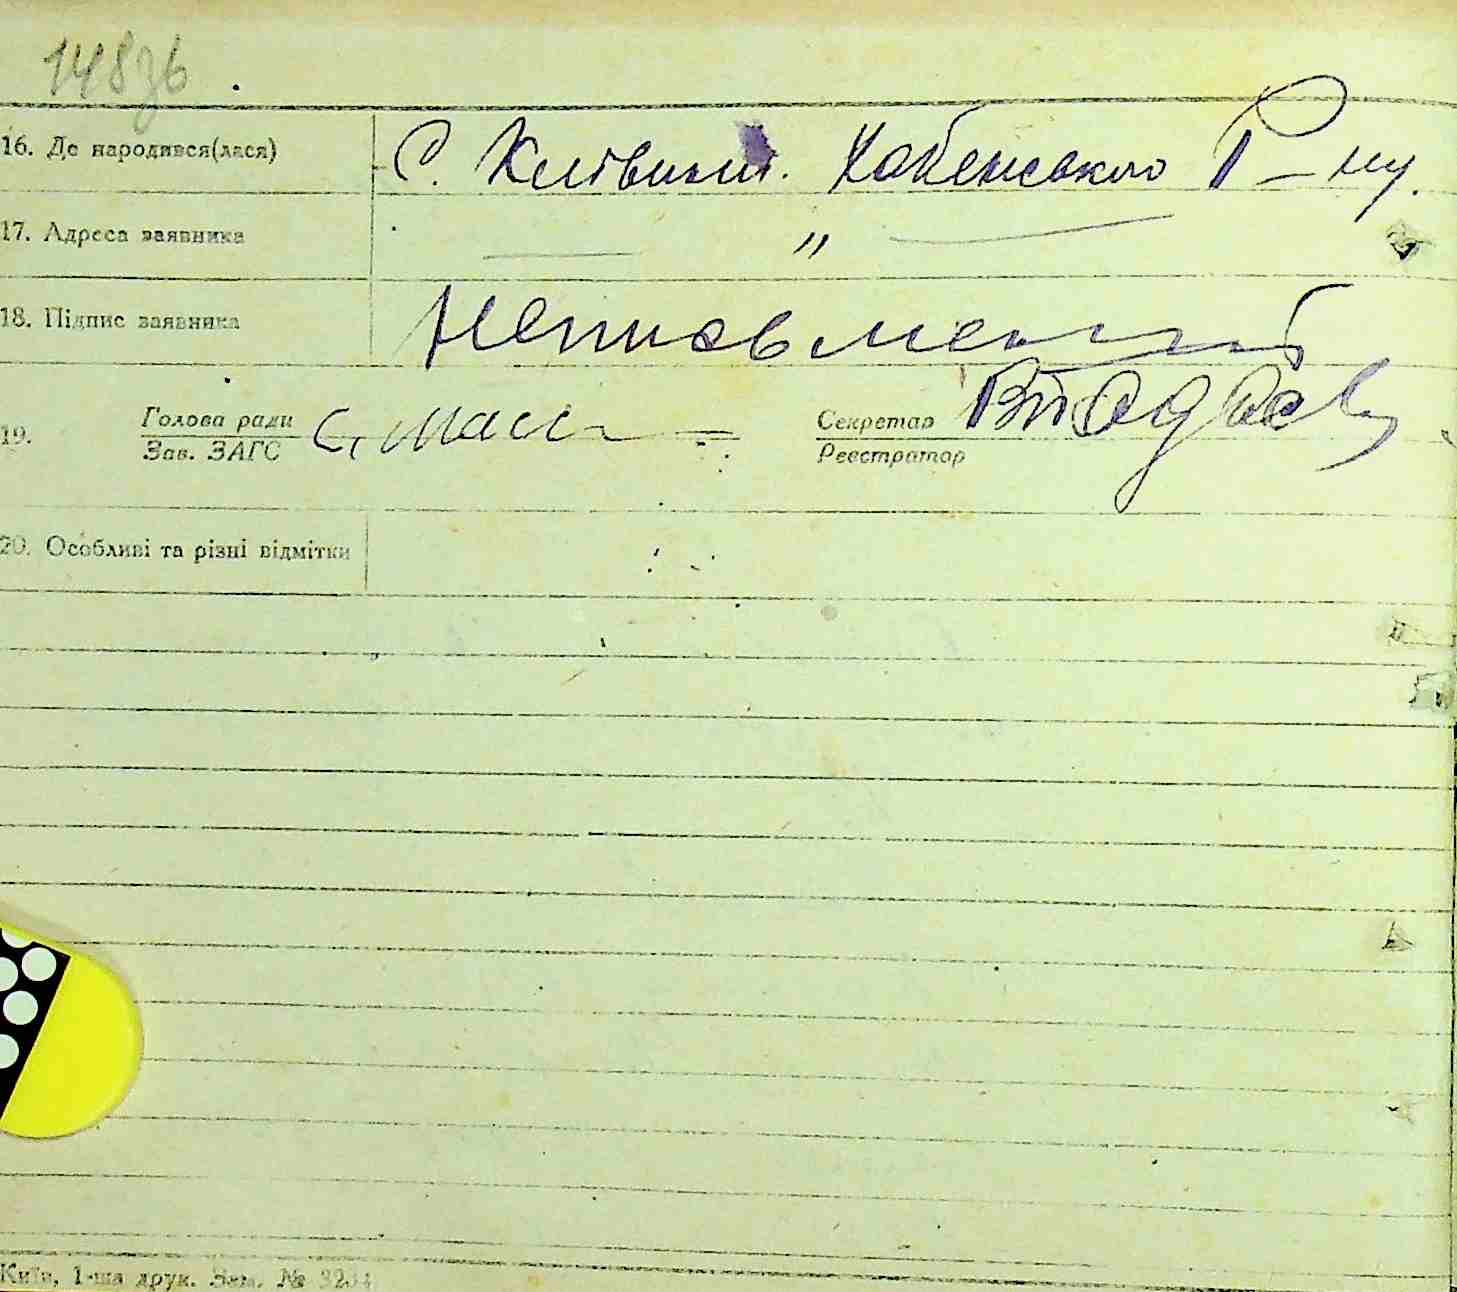 148зв
16. Де народився(лася) С. Кливини. Хабенського Р-ну.
17. Адреса заявника — „ —
18. Підпис заявника Неписьменний
19. Голова ради Секретар
Зав. ЗАГС Реєстратор
20. Особливі та різні відмітки
Київ, 1-ша друк. Зам. №